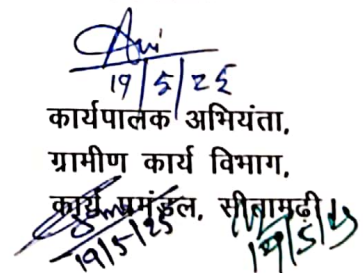 19/5/25
कार्यपालक अभियंता,
ग्रामीण कार्य विभाग,
कार्य प्रमंडल, सीतामढ़ी
19/5/25 19/5/25